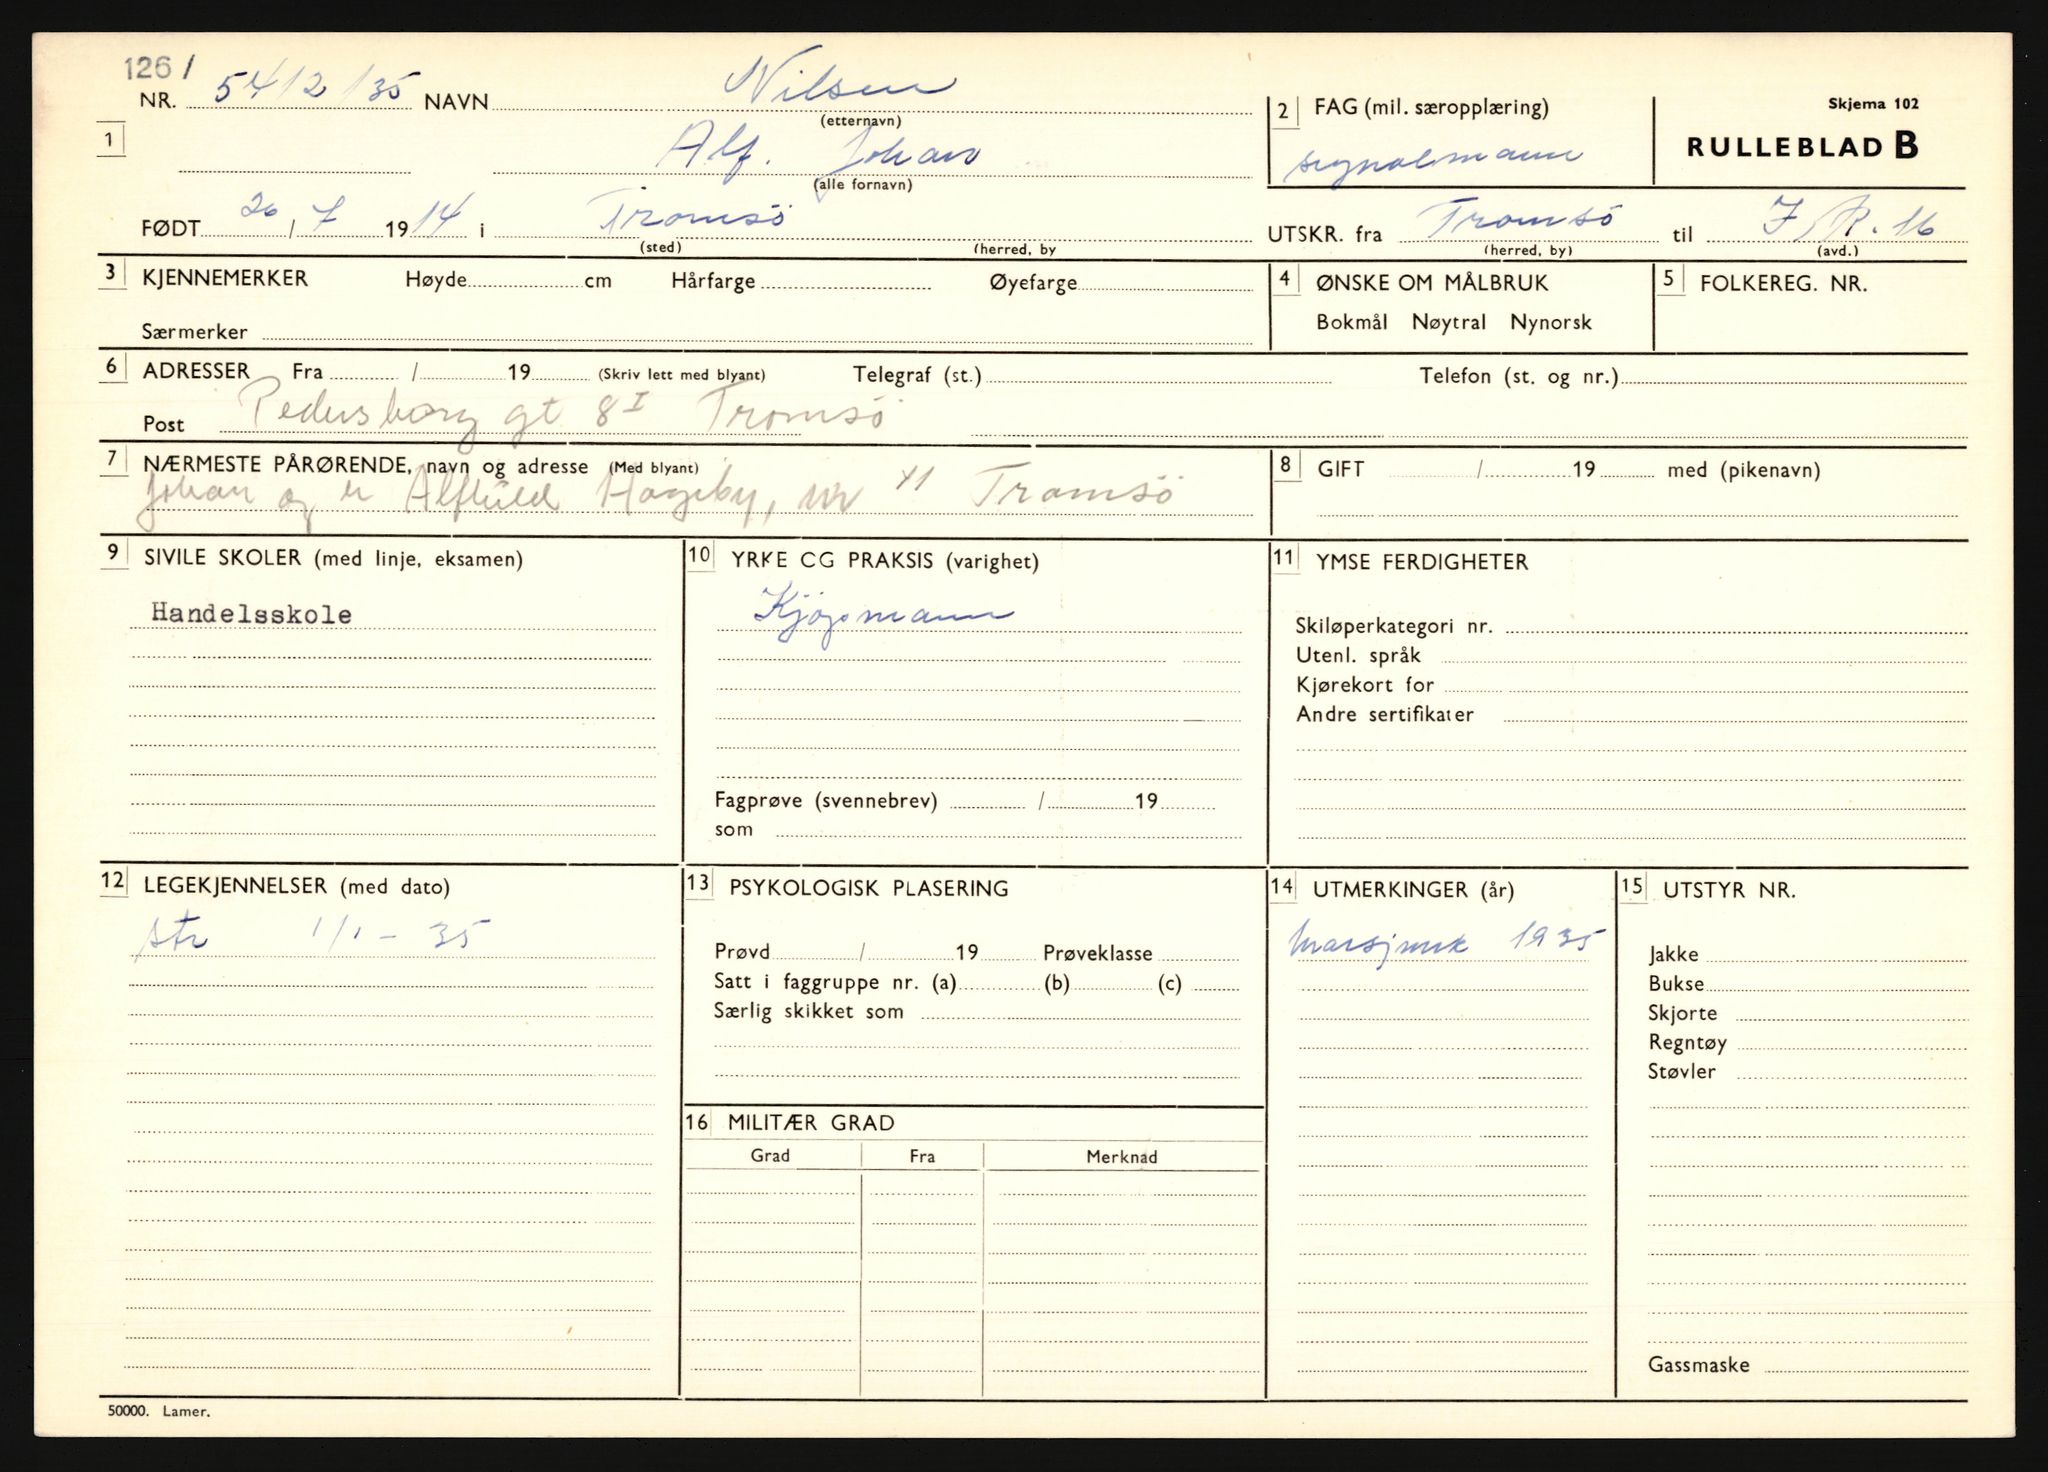 126/
NR. 5412/35 NAVN Nilsen
(etternavn)
1
Alf. Johan
(alle fornavn)
FØDT 20/7 1914 i Tromsö
(sted) (herred, by
2 FAG (mil. særopplæring)
signalmann
Skjema 102
RULLEBLAD B
UTSKR. fra Tromsö til I.R. 16
(herred, by) (avd.)
3 KJENNEMERKER Høyde cm Hårfarge Øyefarge
Særmerker
4 ØNSKE OM MÅLBRUK
Bokmål Nøytral Nynorsk
5 FOLKEREG. NR.
6 ADRESSER Fra / 19 (Skriv lett med blyant) Telegraf (st.) Telefon (st. og nr.)
Post Pedersborg gt 8 I Tromsö
7 NÆRMESTE PÅRØRENDE, navn og adresse (Med blyant)
Johan og Alfhild Hageby, nr 41 Tromsö
8 GIFT / 19 med (pikenavn)
9 SIVILE SKOLER (med linje, eksamen)
Handelsskole
10 YRKE CG PRAKSIS (varighet)
Kjöpmann
Fagprøve (svennebrev) / 19
som
11 YMSE FERDIGHETER
Skiløperkategori nr.
Utenl. språk
Kjørekort for
Andre sertifikater
12 LEGEKJENNELSER (med dato)
str 1/1 - 35
13 PSYKOLOGISK PLASERING
Prøvd / 19 Prøveklasse
Satt i faggruppe nr. (a) (b) (c)
Særlig skikket som
14 UTMERKINGER (år)
Marsjmrk 1935
15 UTSTYR NR.
Jakke
Bukse
Skjorte
Regntøy
Støvler
Gassmaske
16 MILITÆR GRAD
Grad Fra Merknad
50000. Lamer.